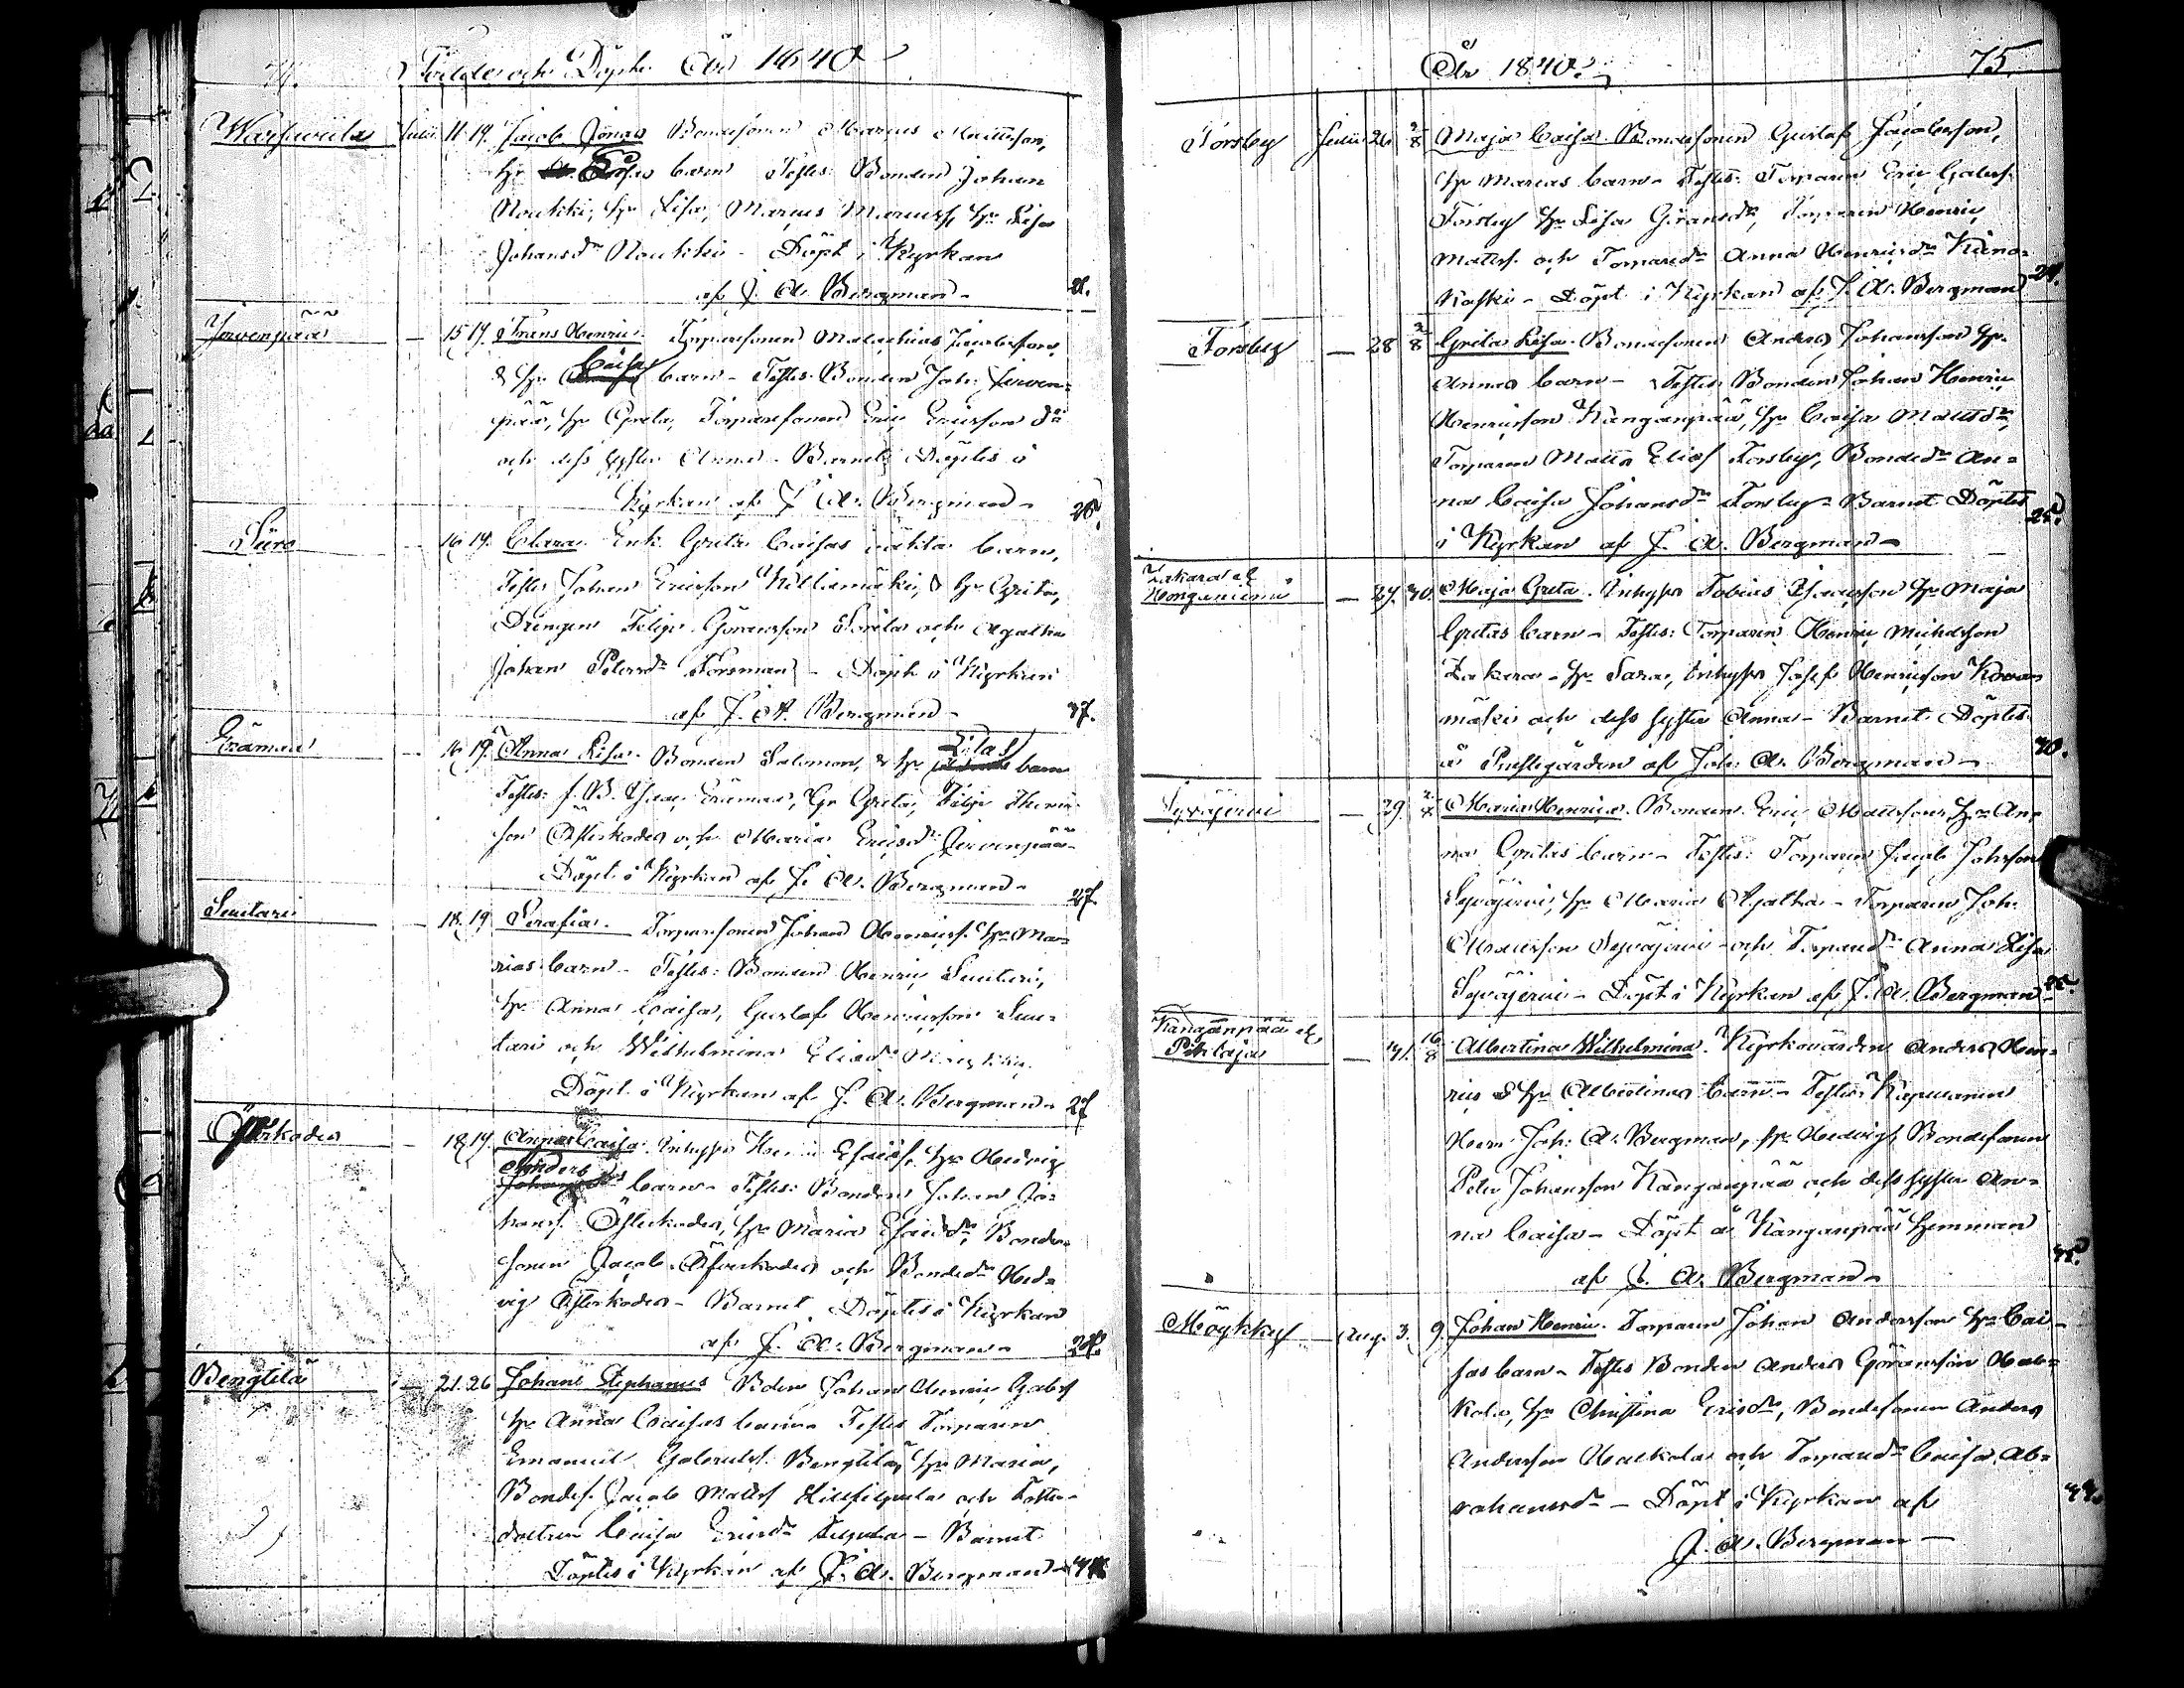 74. Födde och Döpte År 1840
Warsavuila Julii 11 19. Jacob Jonas Bondesonen Marcus Mattsson,
hu Caisas barn Testes: Bonden Johan
Noukki, hu Lisa, Marcus Marcuss, hu Lisa
Johansdr Noukki - Döpt i Kyrkan
af J. A. Bergman - 21.
Jervenpää — 15 19. Frans Henric. Torparesonen Malachias Jacobsson,
& hu Caisas barn - Testes: Bonden Joh: Jerven=
pää, hu Greta, Torparesonen Eric Ericsson
och dess syster Anna - Barnet Döptes i
Kyrkan af J. A. Bergman - 26.
Siiro 16 19. Clara. Enk. Greta Caisas oäkta barn,
Testes Johan Ericsson Killiamäki, & hu Greta,
Drengen Filip Göransson Sorila och Agatha
Johan Petersdr Forsman - Döpt i Kyrkan
af J. A. Bergman - 37.
Erämaa — 16 19. Anna Lisa. Bonden Salomon, & hu barn
Testes: f. B. Isac Erämaa, hu Greta, Filip Henric
son Öfterkader och Maria Ericsdr Jervenpää -
Döpt i Kyrkan af J. A. Bergman - 27.
Suutari - 18. 19 Serafia. Torparesonen Johan Henricss. hu Ma=
rias barn - Testes: Bonden Henric Suutari,
hu Anna Caisa, Gustaf Henricsson Suu=
tari och Wilhelmina Eliaedr
Döpt i Kyrkan af J. A. Bergman - 27
— 18 19. Anna Caisa. Inhyses Esaiss. hu Hedvig
Anders
barn - Testes: Bonden Johan Jo=
hanss. hu Maria Esaiedr, Bonde=
sonen Jacob och Bondedr Hed=
vig - Barnet Döptes i Kyrkan
af J. A. Bergman - 28.
Bengtilä — 21. 26 Johan Stephanus Bden Johan Henric Gabrs
hu Anna Caisas barn - Testes Torparen
Emanuel Gabrielss. Bengtilä, hu Maria,
Bondes. Jacob Matts och Foster=
dottren Caisa Ericsdr - Barnet
Döptes i Kyrkan af J. A. Bergman -
År 1840. 75.
Forsby Julii 26 2/8 Maja Caisa. Bondesonen Gustaf Jacobsson,
hu Marias barn - Testes: Torparen Eric Gabrs.
Forsby hu Lisa Göransdr, Torparen Henric
Matts. och Torparedr Anna Henricsdr Kuno=
kaski - Döpt i Kyrkan af J. A. Bergman 24.
Forsby — 28 2/8 Greta Lisa. Bondesonen Anders Johansson hu
Annas barn - Testes: Bonden Johan Henric
Henricsson Kanganpää, hu Caisa Mattsdr,
Torparen Matts Elias Forsby, Bondedr An=
na Caisa Johansdr Forsby - Barnet Döptes
i Kyrkan af J. A. Bergman - 25.
Zakara el
Honganiemi — 29. 30. Maja Greta. Inhyses Tobias Isacsson hu Maja
Gretas barn - Testes: Torparen Henric Michelsson
Zakara - hu Sara, Inhyses Josef Henricsson Kowa=
mäki och dess syster Anna - Barnet Döptes
å Prestegården af Joh. A. Bergman - 30.
Syväjervi — 29. 2/8 Maria Henrica. Bonden Eric Mattsson, hu An=
na Gretas barn - Testes: Torparen Jacob Johsson
Syväjervi, hu Maria Agatha - Torparen Joh:
Marcusson Syväjervi - och Torparedr Anna Lisa
Syväjervi - Döpt i Kyrkan af J. A. Bergman -
Kanganpää el
Pihlaja — 31. 16/8 Albertina Wilhelmina. Kyrkovärden Anders Hen=
ric & hu Albertinas barn - Testes: Kapellanen
Herr Joh: A. Bergman, fru Hedvig, Bondesonen
Peter Johansson Kanganpää och dess syster An=
na Caisa - Döpt å Kanganpää hemman
af J. A. Bergman - 35.
Möykky — Aug. 3. 9. Johan Henric. Torparen Johan Andersson hu Cai=
sas barn - Testes Bonden Anders Göransson Hau=
kola, hu Christina Ericsdr, Bondesonen Anders
Andersson Haukola och Torparedr Caisa Ab=
rahamsdr - Döpt i Kyrkan af
J. A. Bergman -